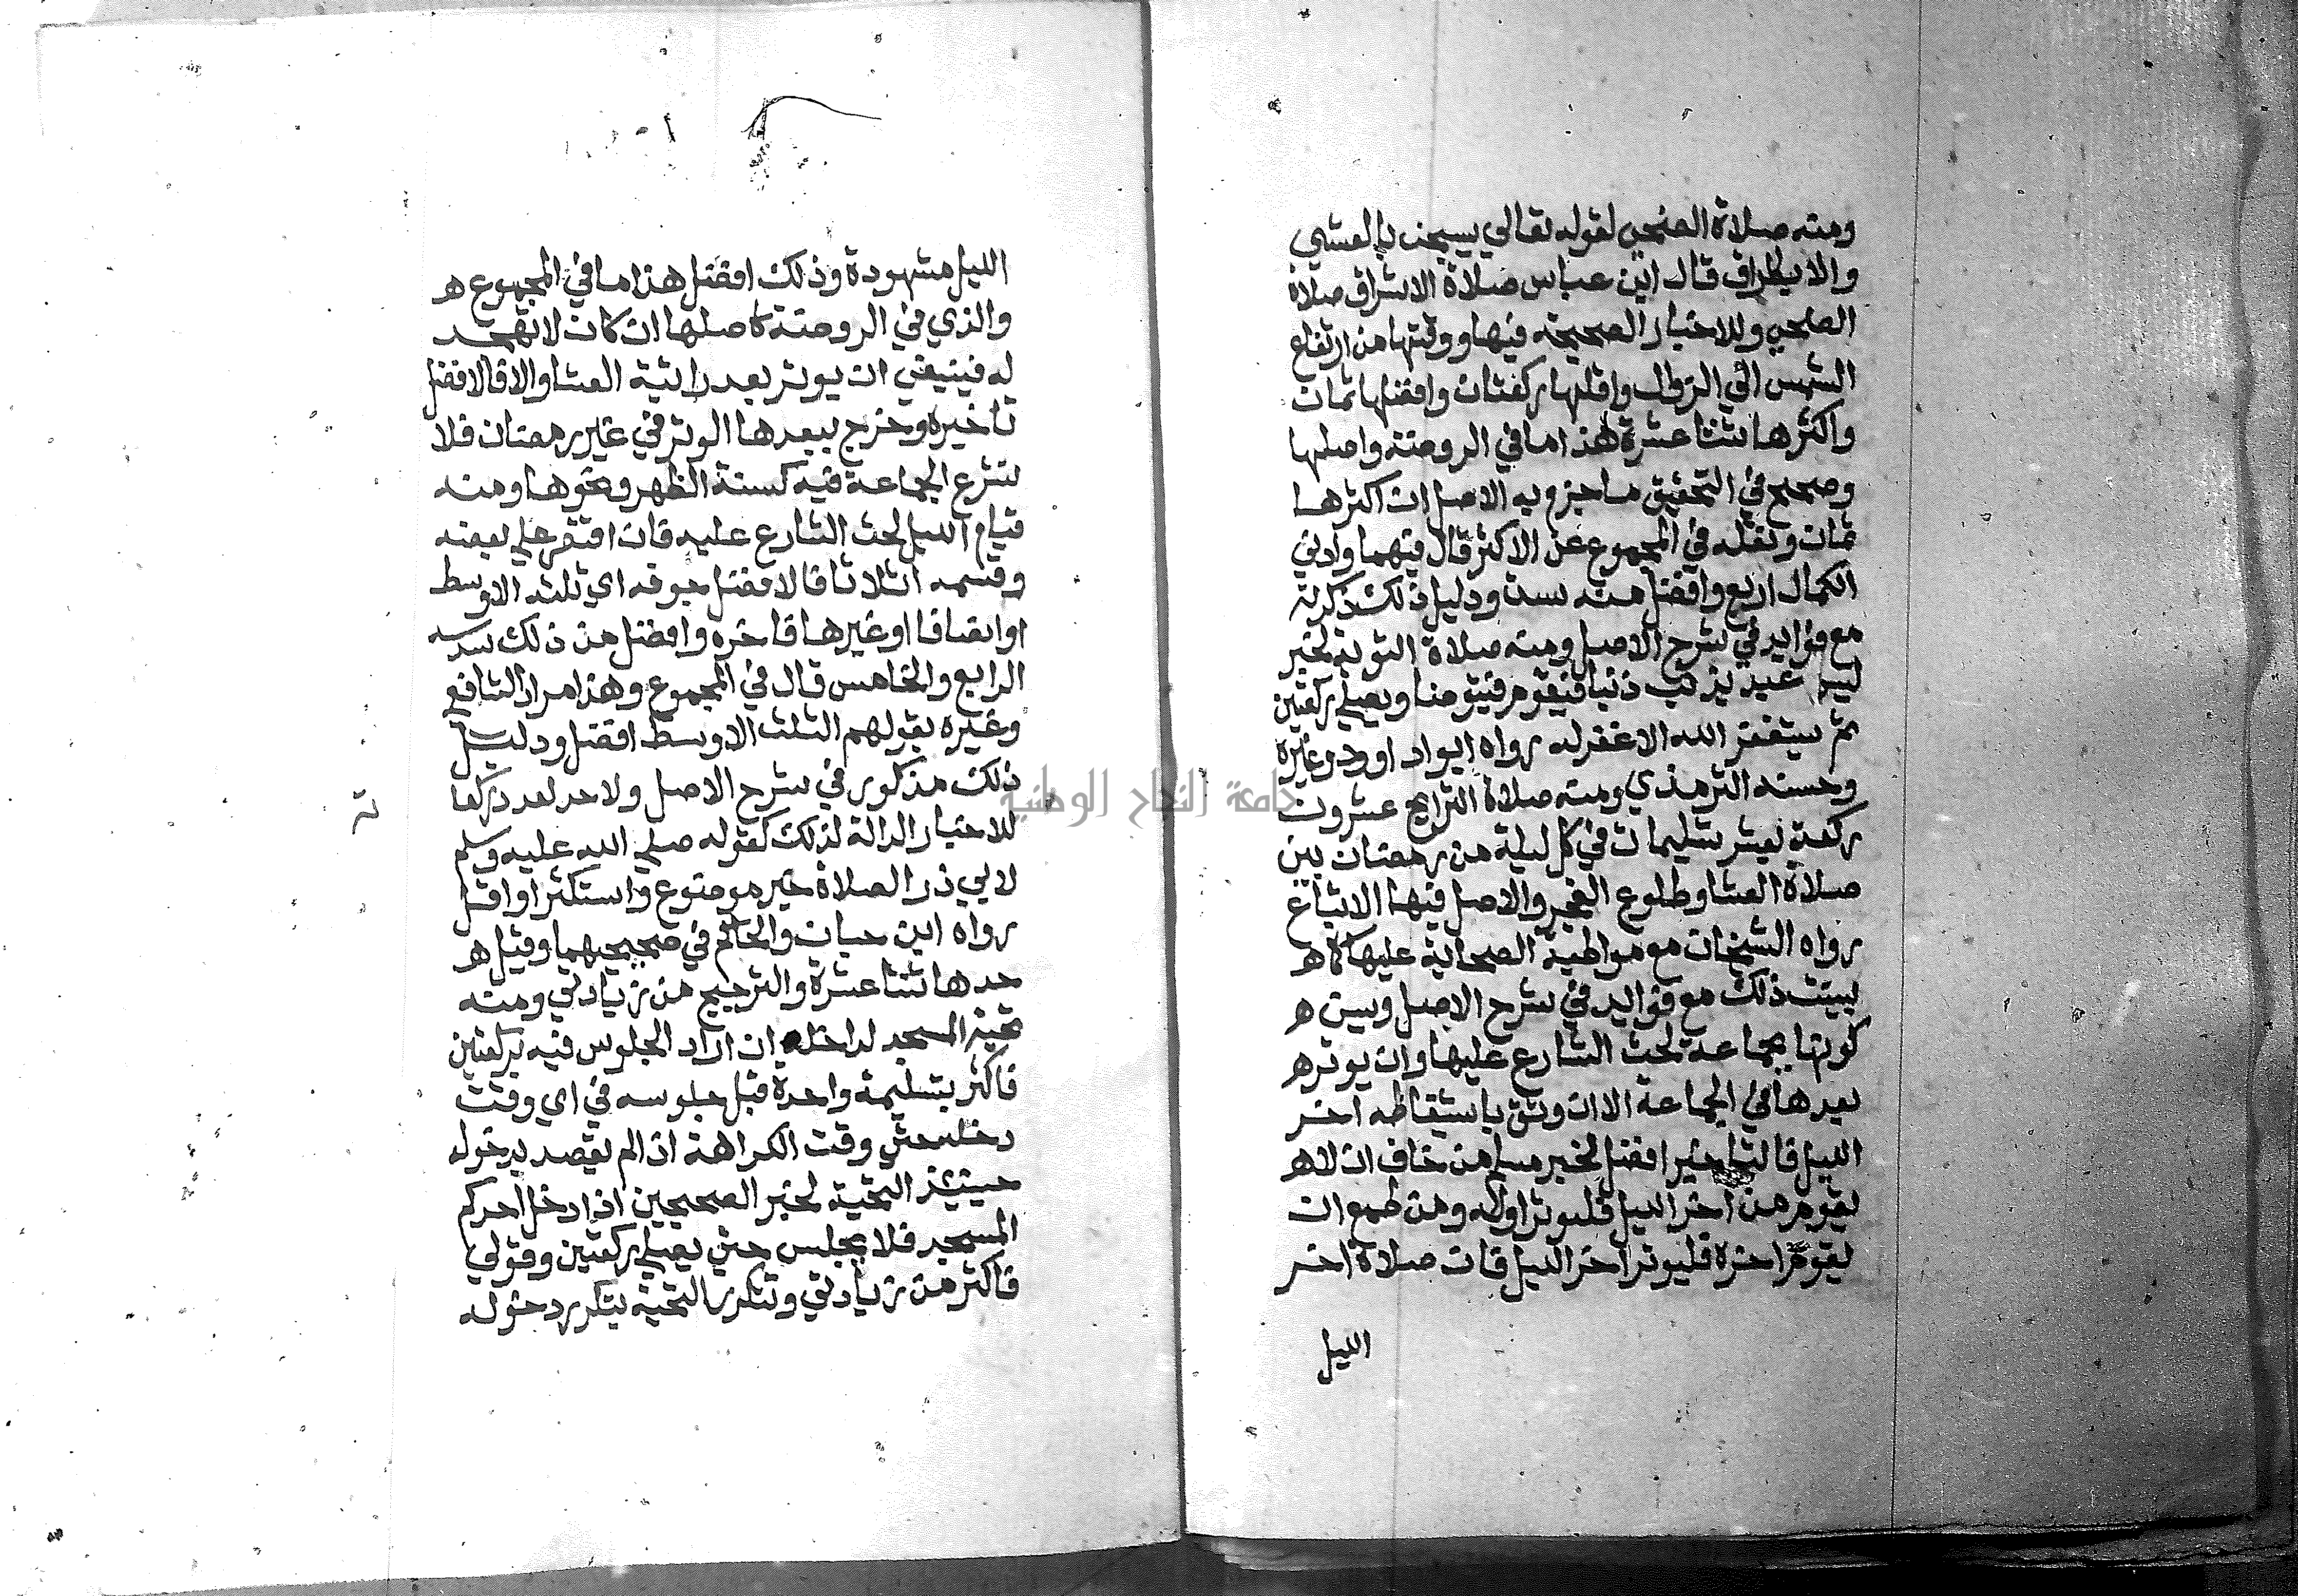 ومنه صلاة الضحي لقوله تعالي يسبحن بالعشي
والاشراق قال ابن عباس صلاة الاشراق صلاة
الضحي وللاخبار الصحيحة فيها ووقتها من ارتفاع
الشمس الي الزوال واقلها ركعتان وافضلها ثمان
واكثرها ثنتا عشرة هذا ما في الروضة واصلها
وصحح في التحقيق ما جزم به الاصل ان اكثرها
ثمان ونقله في المجموع عن الاكثر قال فيهما وادني
الكمال اربع وافضل منه ست ودليل ذلك ذكرته
مع فوايد في شرح الاصل ومنه صلاة التوبة لخبر
ليس عبد يذنب ذنبا فيقوم فيتوضا ويصلي ركعتين
ثم يستغفر الله الا غفر له رواه ابو داود وغيره
وحسنه الترمذي ومنه صلاة التراويح عشرون
ركعة بعشر تسليمات في كل ليلة من رمضان بين
صلاة العشا وطلوع الفجر والاصل فيها الاتباع
رواه الشيخان مع مواظبة الصحابة عليها كما ه
بينت ذلك مع فوايد في شرح الاصل وسن ه
كونها بجماعة لحث الشارع عليها وان يوتر ه
بعدها في الجماعة الا ان وثق باستيقاظه اخر
الليل فالتاخير افضل لخبر مسلم من خاف ان لا ه
يقوم من اخر الليل فليوتر اوله ومن طمع ان
يقوم اخره فليوتر اخر الليل فان صلاة اخر
الليل
الليل مشهودة وذلك افضل هذا ما في المجموع ه
والذي في الروضة كاصلها ان كان لا تهجد
له فينبغي ان يوتر بعد راتبة العشا والا فالافضل
تاخيره وخرج ببعدها الوتر في غير رمضان فلا
تشرع الجماعة فيه كسنة الظهر ونحوها ومنه
قيام الليل لحث الشارع عليه فان اقتصر علي بعضه
وقسمه اثلاثا فالافضل جوفه اي ثلثه الاوسط
او انصافا او غيرها فاخره وافضل من ذلك سدسه
الرابع والخامس قال في المجموع وهذا مراد الشافعي
وغيره بقولهم الثلث الاوسط افضل ودليل
ذلك مذكور في شرح الاصل ولا حد لعدد ركعا
ته
للاخبار الدالة لذلك كقوله صلي الله عليه وسلم
لابي ذر الصلاة خير موضوع واستكثر او اقل
رواه ابن حبان والحاكم في صحيحيهما وقيل ه
حدها ثنتا عشرة والترجيح من زيادتي ومنه
تحية المسجد لداخله ان اراد الجلوس فيه بركعتين
فاكثر بتسليمة واحدة قبل جلوسه في اي وقت
دخله حتي وقت الكراهة اذا لم يقصد بدخوله
حينئذ التحية لخبر الصحيحين اذا دخل احدكم
المسجد فلا يجلس حتي يصلي ركعتين وقولي
فاكثر من زيادتي وتتكرر التحية بتكرر دخوله
جامعة النجاح الوطنية